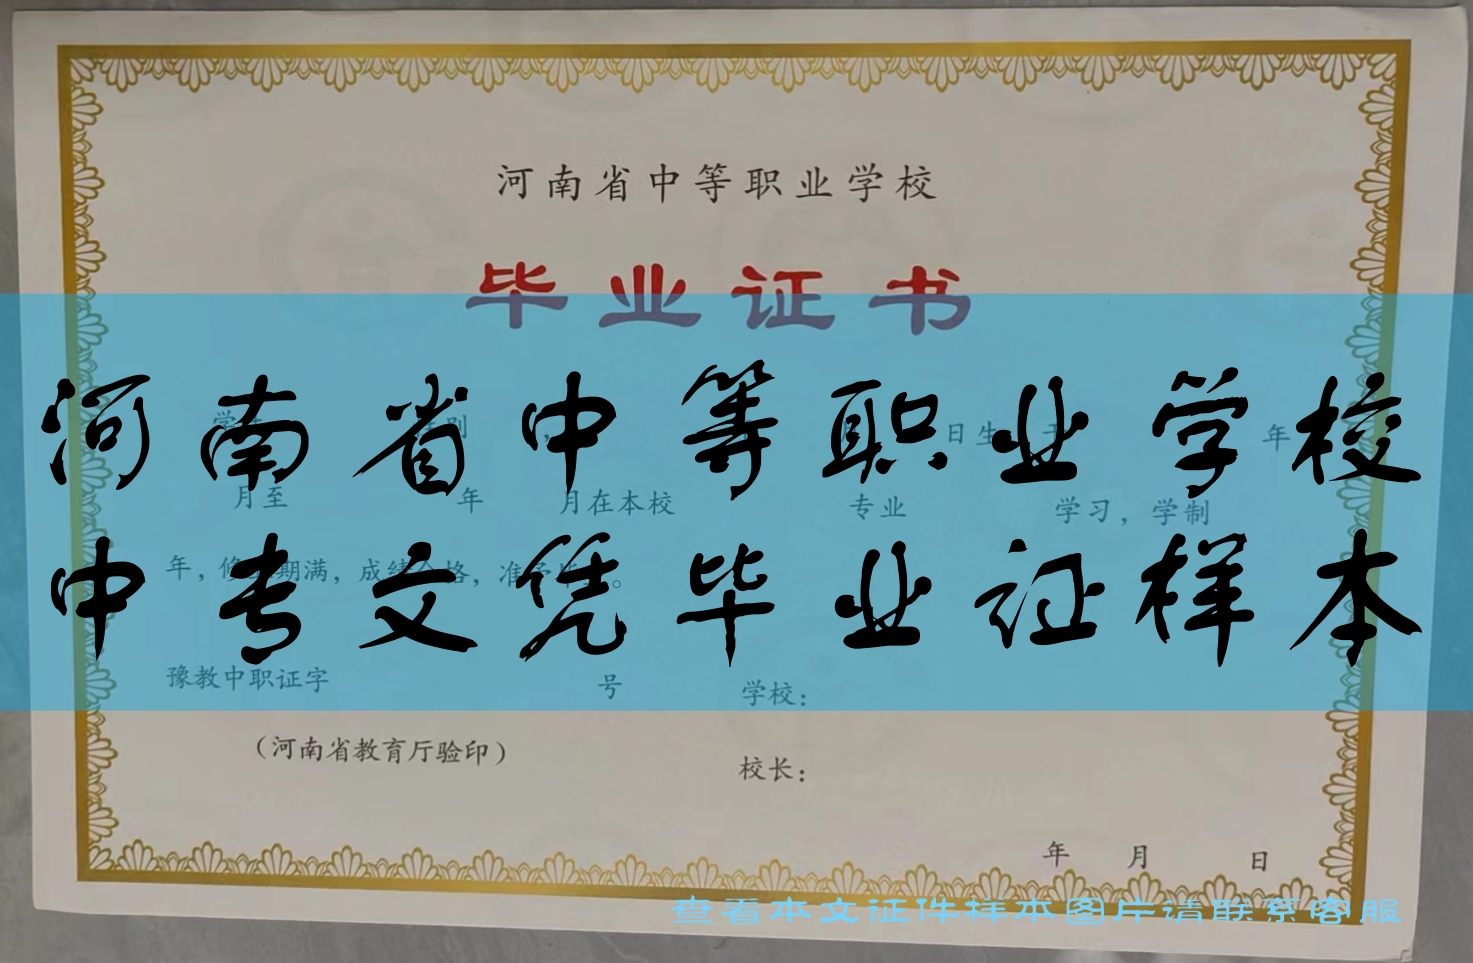 河南省中等职业学校
毕业证书
河南省中等职业学校
学 别 日生 于 年
月至 年 月在本校 专业 学习，学制
中专文凭毕业证样本
年，修 期满，成绩合格，准予毕业。
豫教中职证字 号 学校：
（河南省教育厅验印）
校长：
年 月 日
查看本文证件样本图片请联系客服